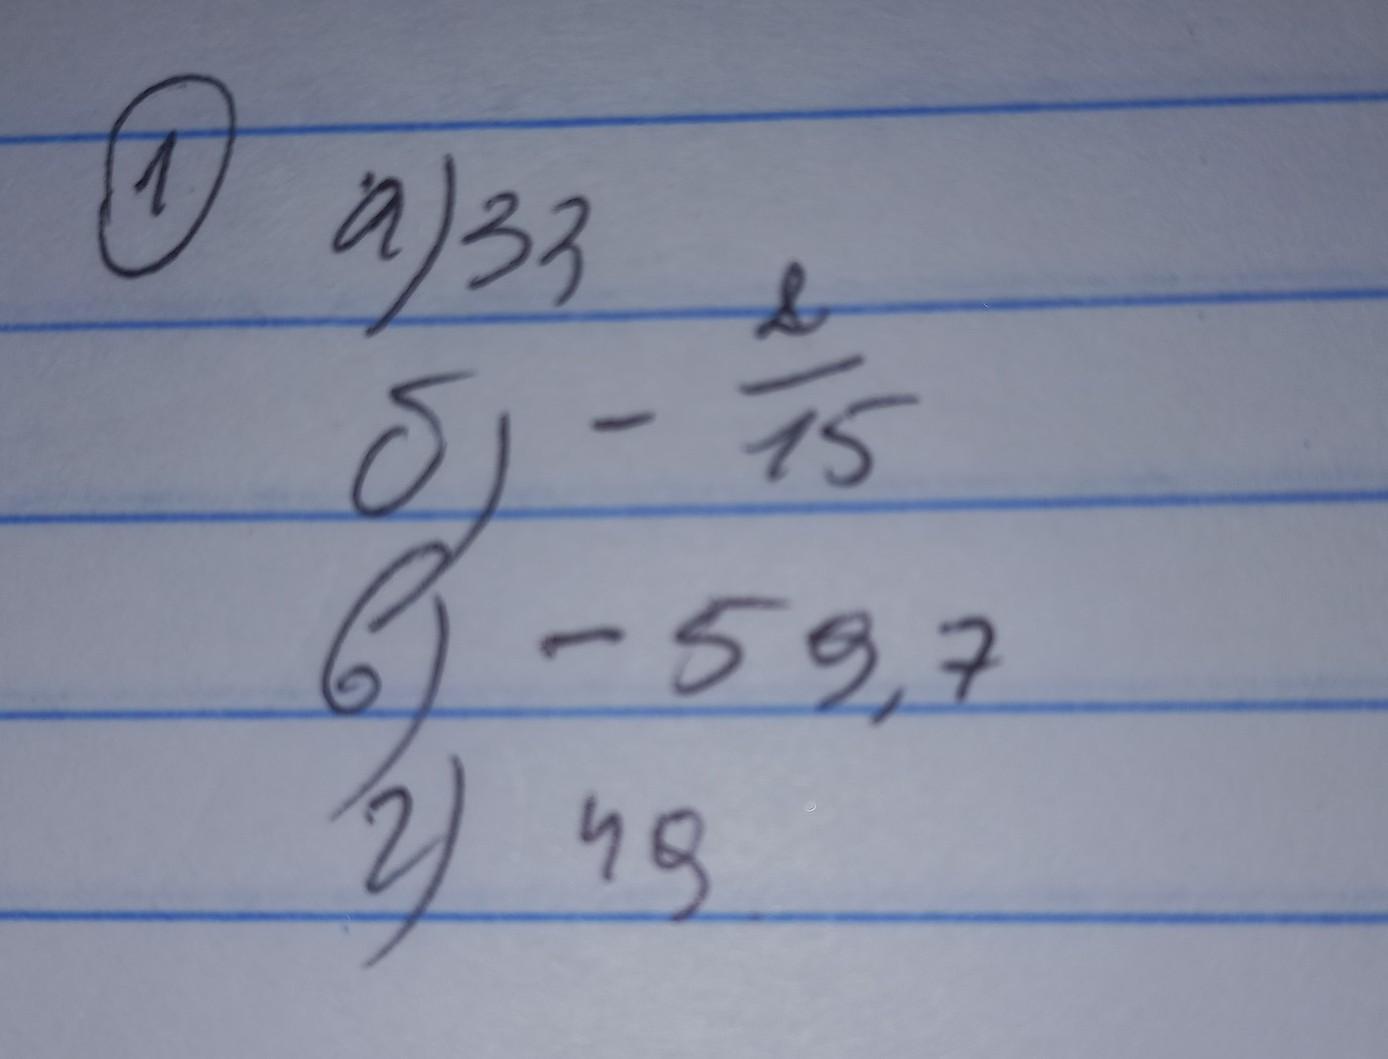 1 а) 33
б) - 2/15
в) - 59,7
г) 49